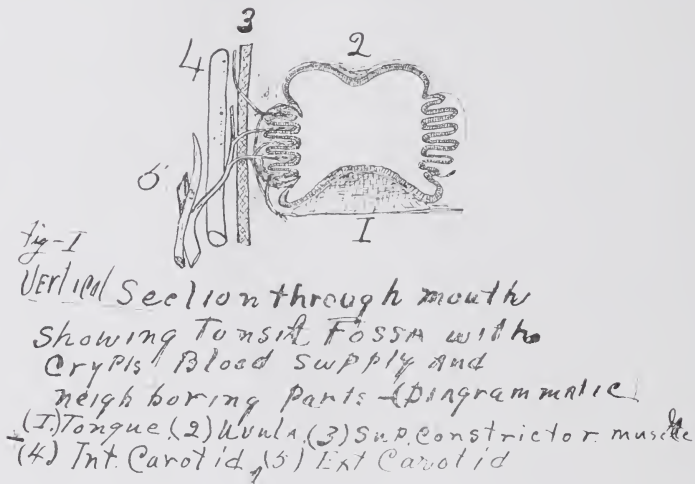 3
4
2
5
1
Fig-I
Vertical Section through mouth
showing Tonsil Fossa with
Crypts Blood supply and
neighboring parts - Diagrammatic
(I.) Tongue (2) Uvula (3) Sup. Constrictor muscle
(4) Int. Carotid, (5) Ext Carotid